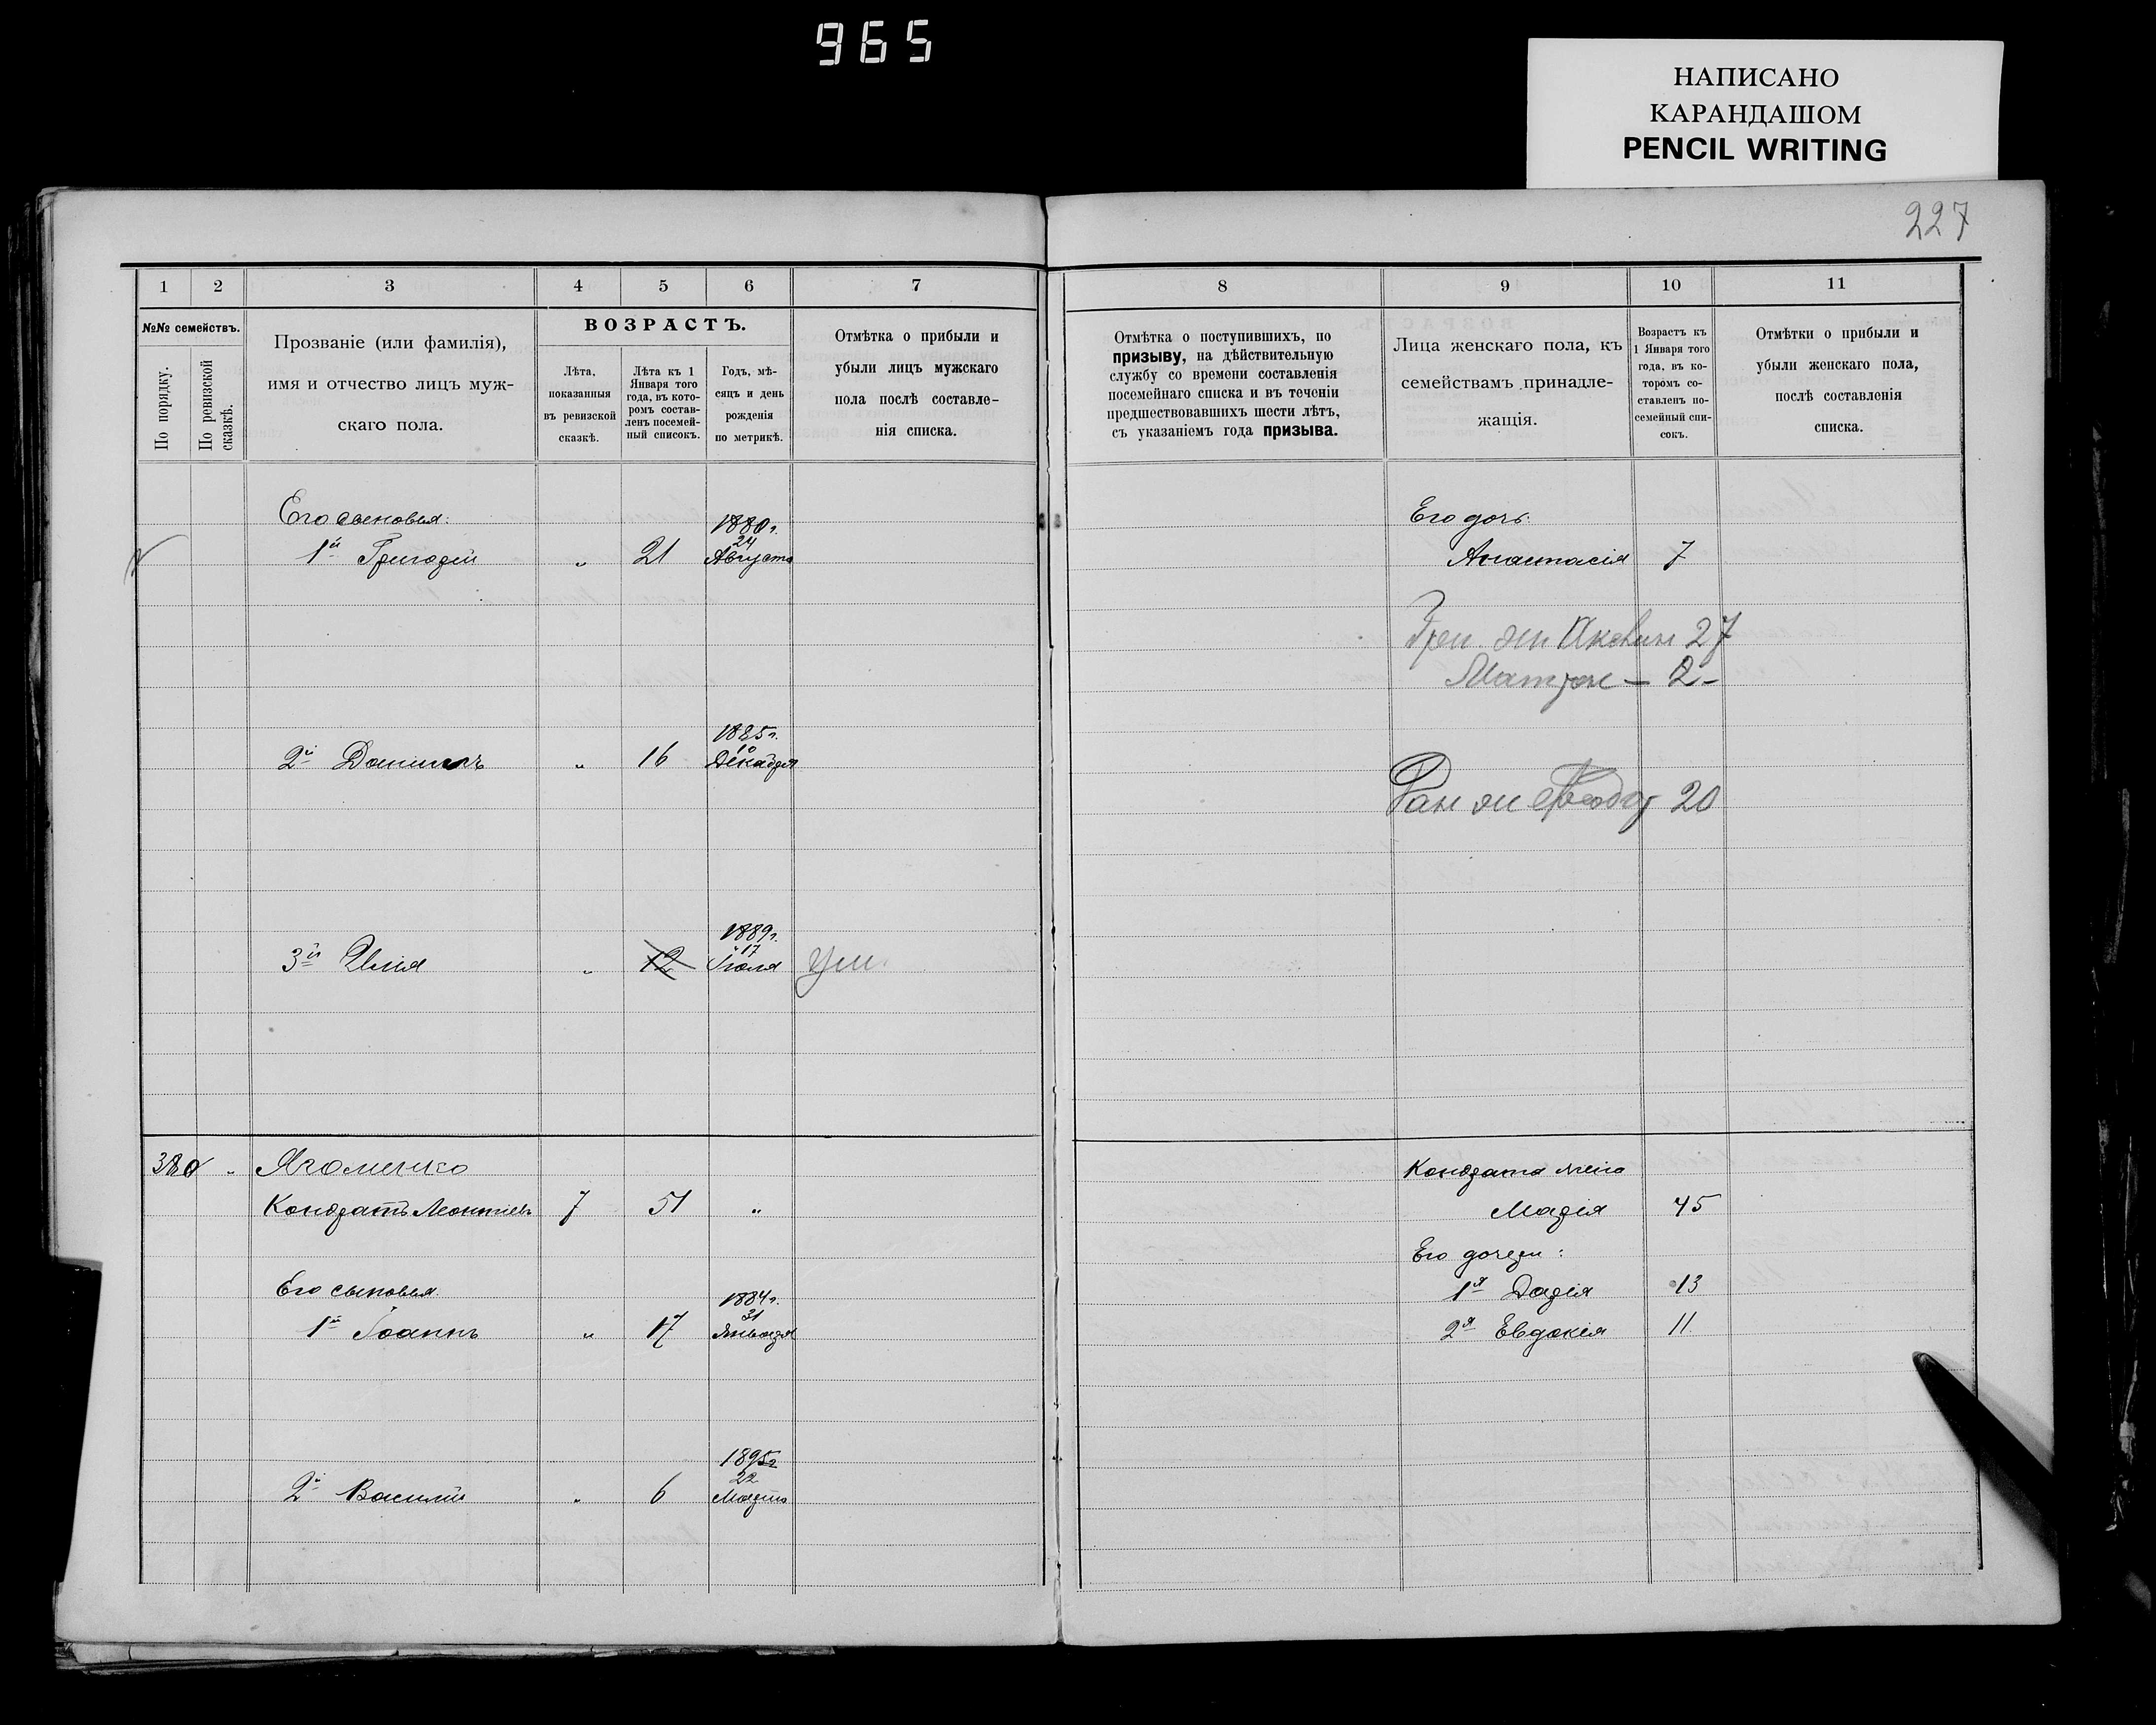 965
НАПИСАНО
КАРАНДАШОМ
PENCIL WRITING
227
1 2 3 4 5 6 7
№№ семействъ.
По порядку.
По ревизской сказкѣ.
Прозваніе (или фамилія),
имя и отчество лицъ муж-
скаго пола.
ВОЗРАСТЪ.
Лѣта,
показанныя
въ ревизской
сказкѣ.
Лѣта къ 1
Января того
года, въ кото-
ромъ состав-
ленъ посемей-
ный списокъ.
Годъ, мѣ-
сяцъ и день
рожденія
по метрикѣ.
Отмѣтка о прибыли и
убыли лицъ мужскаго
пола послѣ составле-
нія списка.
Его сыновья:
1880 г.
24
1й Григорій „ 21 Августа
1885 г.
2й Даніилъ „ 16 Декабря
1889 г.
17
3й Илія „ 12 Іюля ум.
380 „ Ягоменко
Кондратъ Леонтіевъ 7 51 „
Его сыновья
1884 г.
31
1й Іоаннъ „ 17 Января
1895 г
22
2й Василій „ 6 Марта
8 9 10 11
Отмѣтка о поступившихъ, по
призыву, на дѣйствительную
службу со времени составленія
посемейнаго списка и въ теченіи
предшествовавшихъ шести лѣтъ,
съ указаніемъ года призыва.
Лица женскаго пола, къ
семействамъ принадле-
жащія.
Возрастъ къ
1 Января того
года, въ ко-
торомъ со-
ставленъ по-
семейный спи-
сокъ.
Отмѣтки о прибыли и
убыли женскаго пола,
послѣ составленія
списка.
Его дочь:
Анастасія 7
Гри. жи 27
Матрон — 2 -
жи 20
Кондрата жена
Марія 45
Его дочери:
1я Дарія 13
2я Евдокія 11